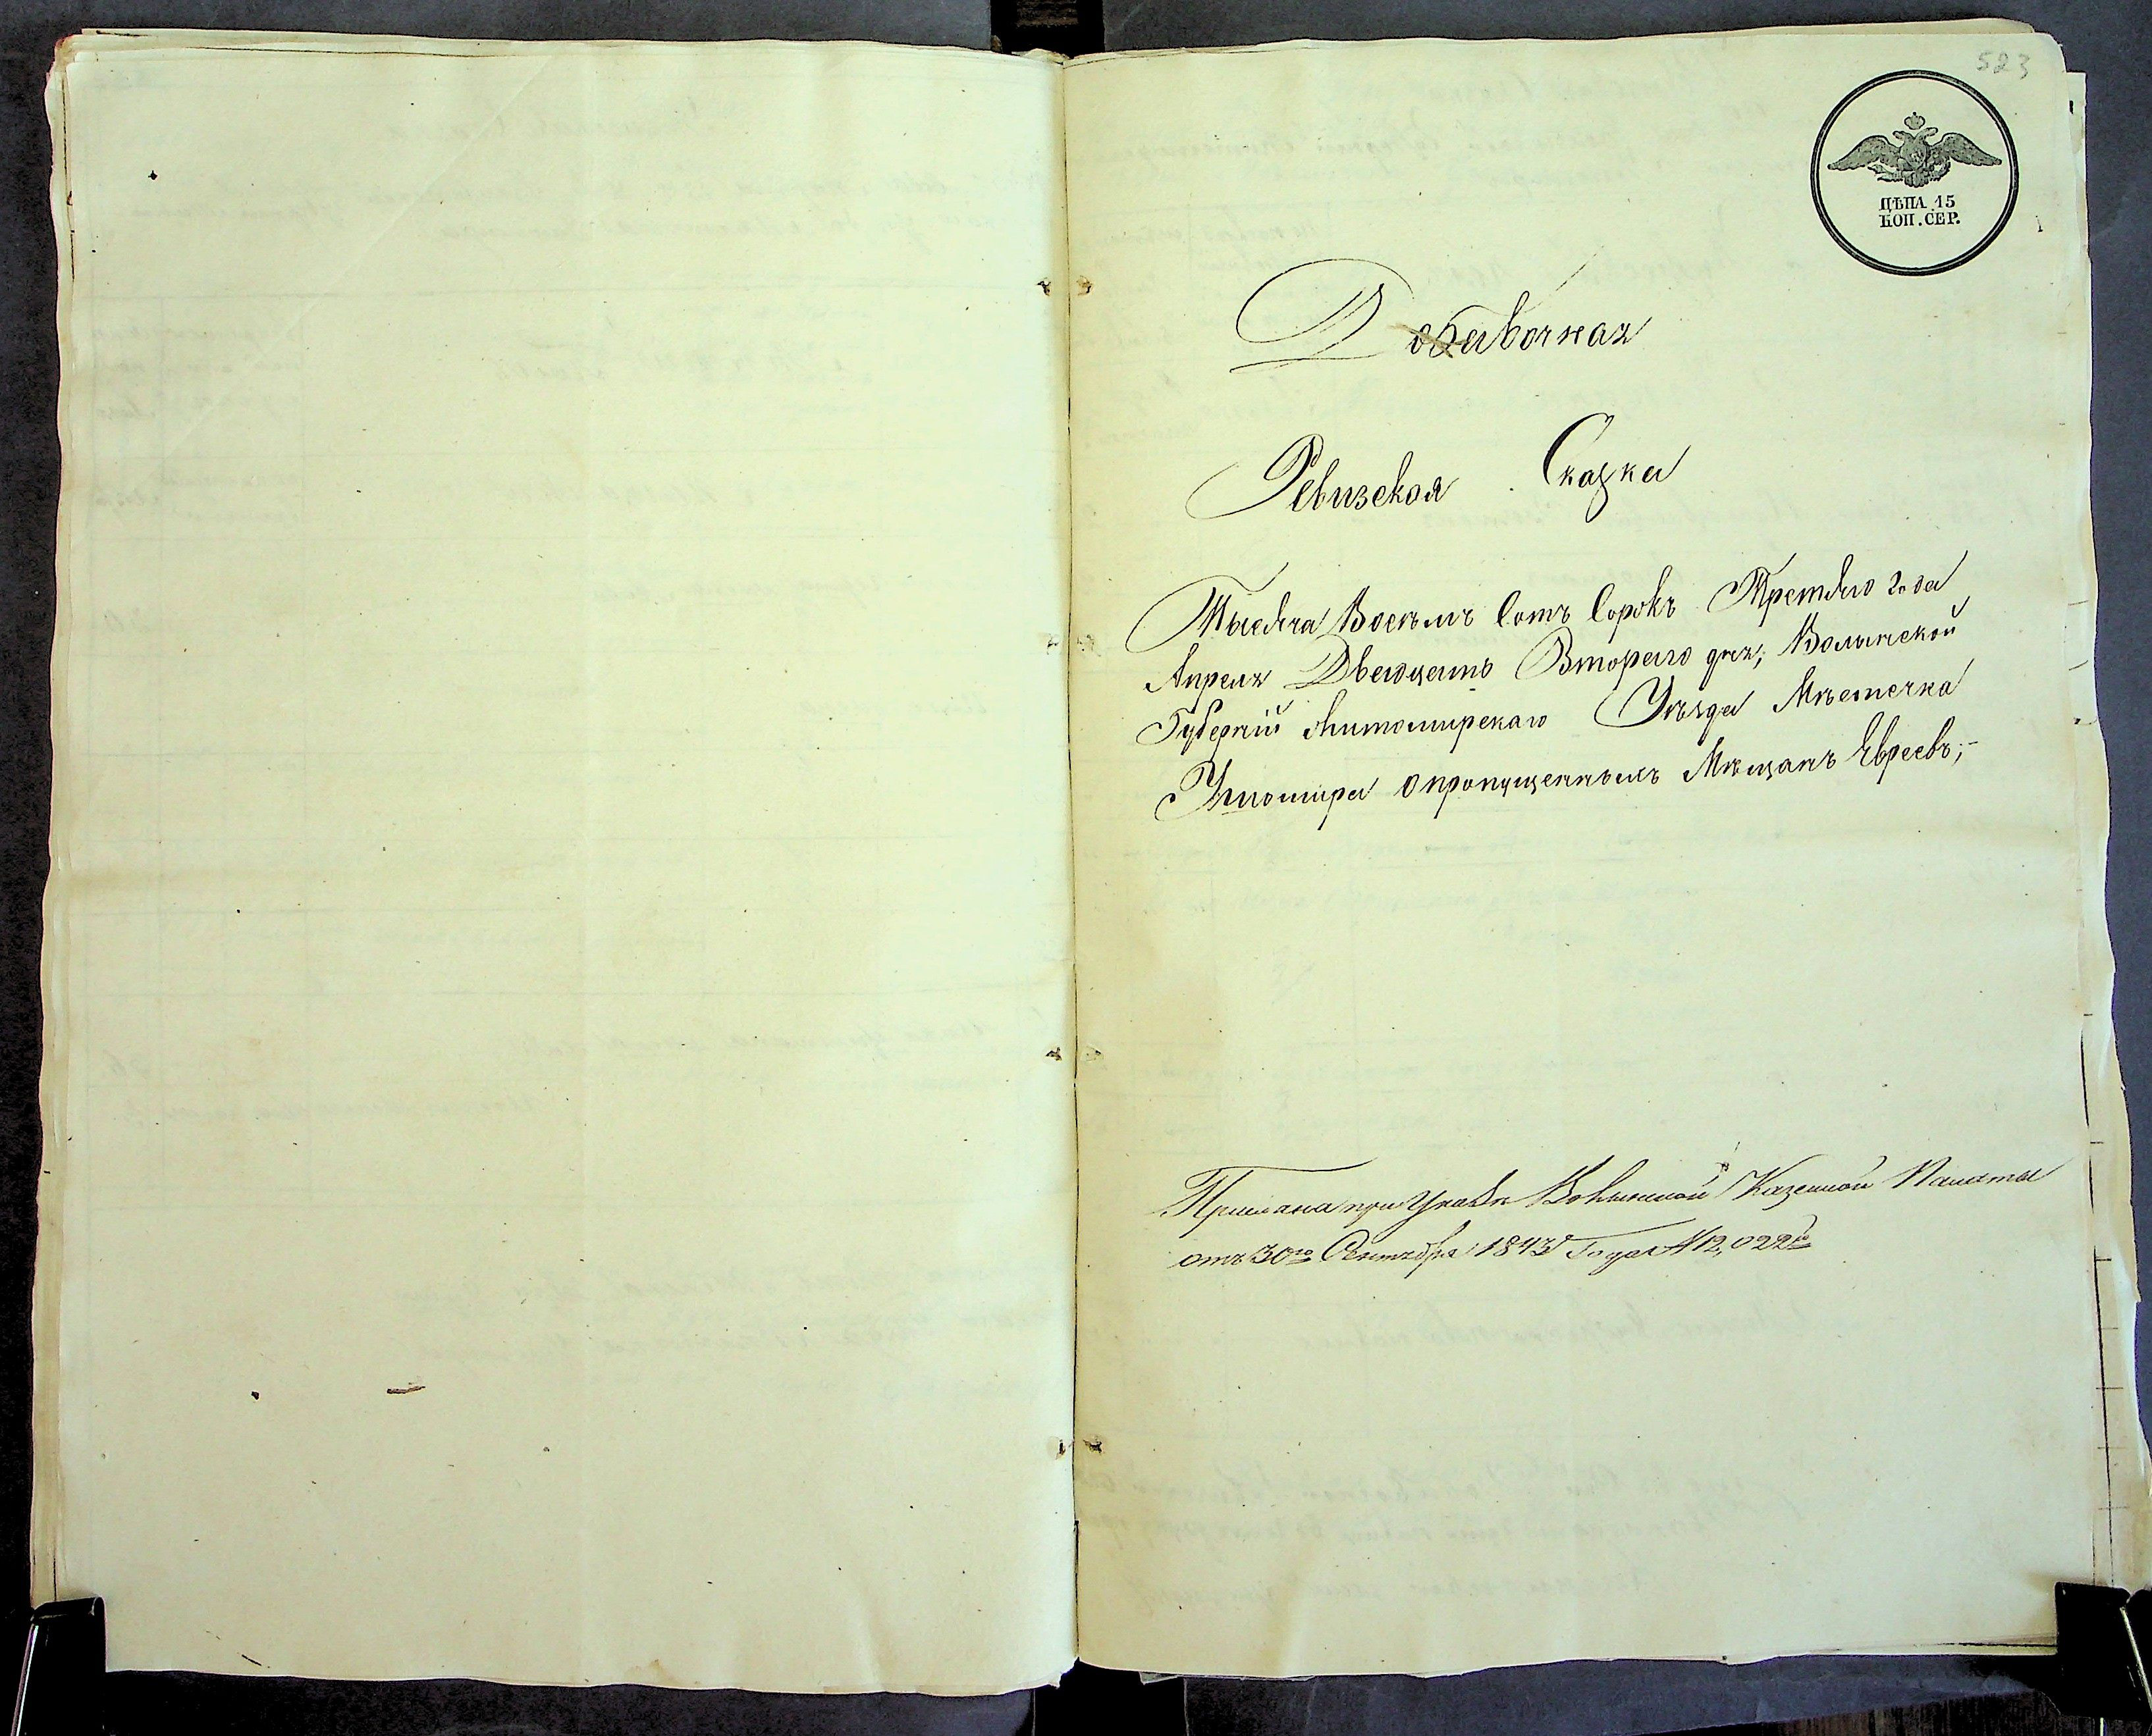 523
ЦѢНА 15
КОП. СЕР.
Добавочная
Ревизская Сказка
Тысяча Восемь Сотъ Сорокъ Третьяго года
Апреля Двадцать Втораго дня, Волынской
Губерніи Житомирскаго Уѣзда Мѣстечка
Ушомира о пропущенныхъ Мѣщанъ Евреевъ;
Прислана при Указѣ Волынской Казенной Палаты
отъ 30го Сентября 1843 Года № 12,022го